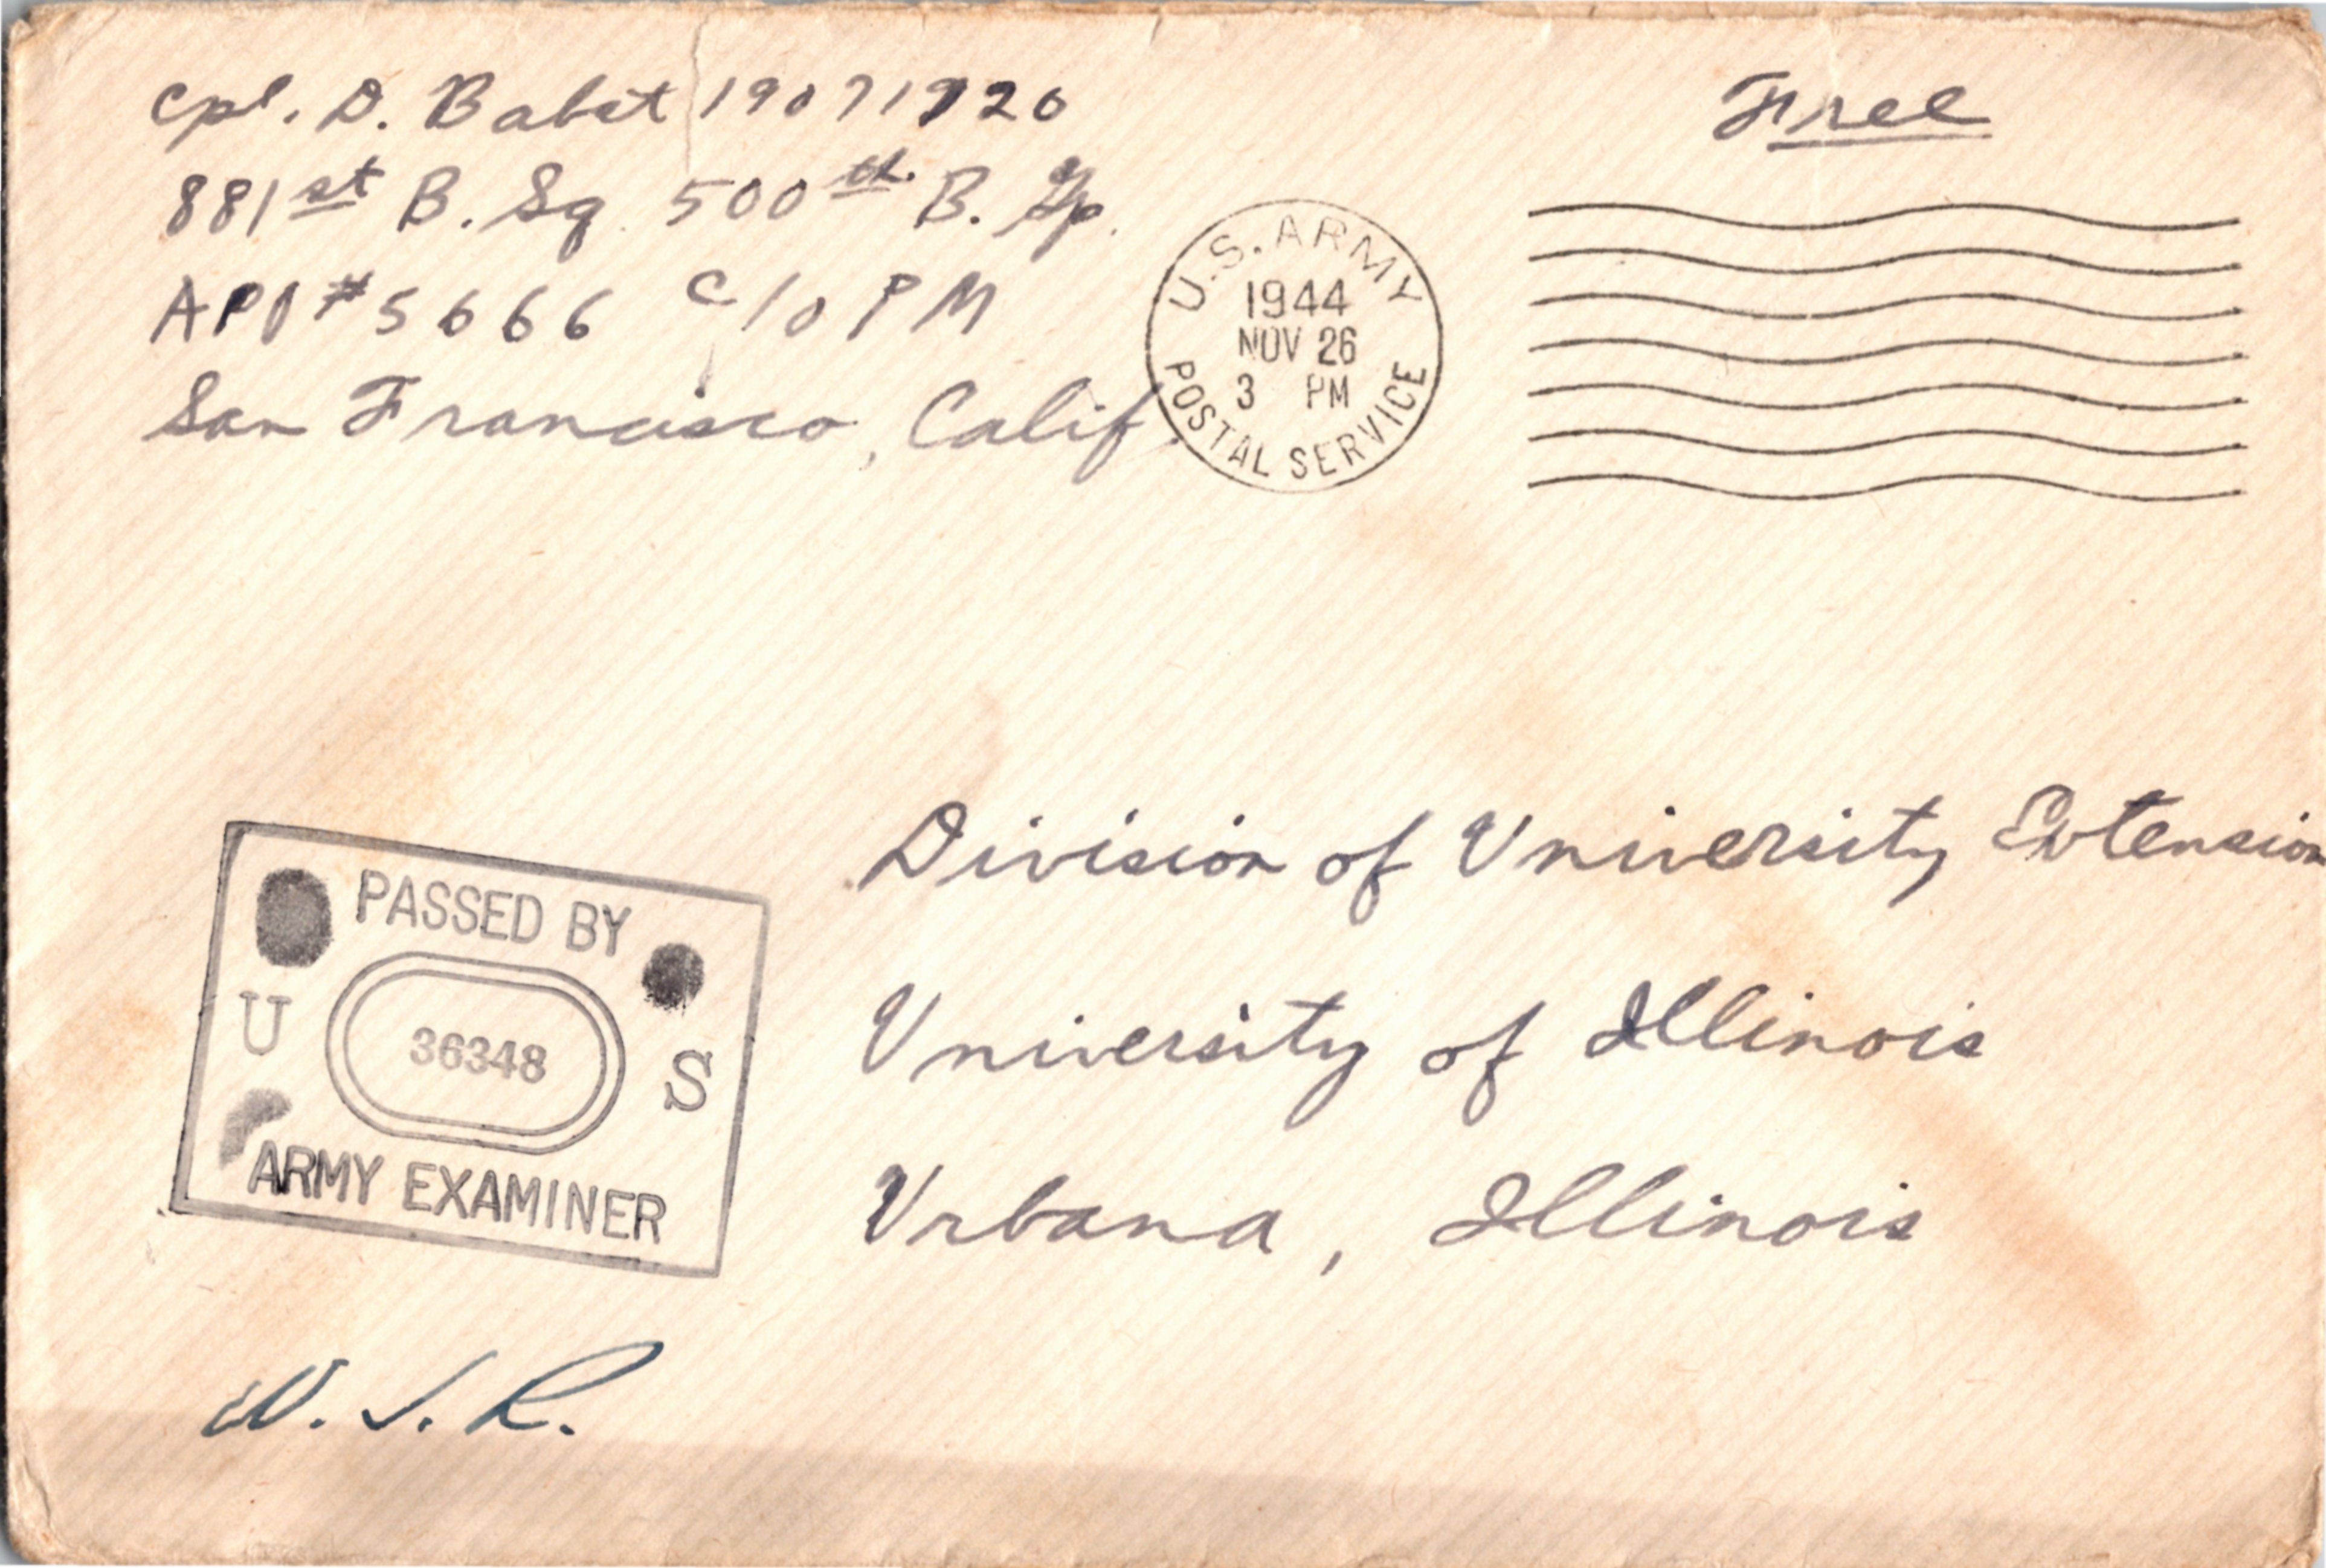 Cpl. D. Babst 19071920
881st B. Sq. 500th B. Gp.
APO #5666 c/o PM
San Francisco, Calif.
Free
U.S. ARMY
1944
NOV 26
3 PM
POSTAL SERVICE
Division of University Extension
University of Illinois
Urbana, Illinois
PASSED BY
U 36348 S
ARMY EXAMINER
W. J. R.